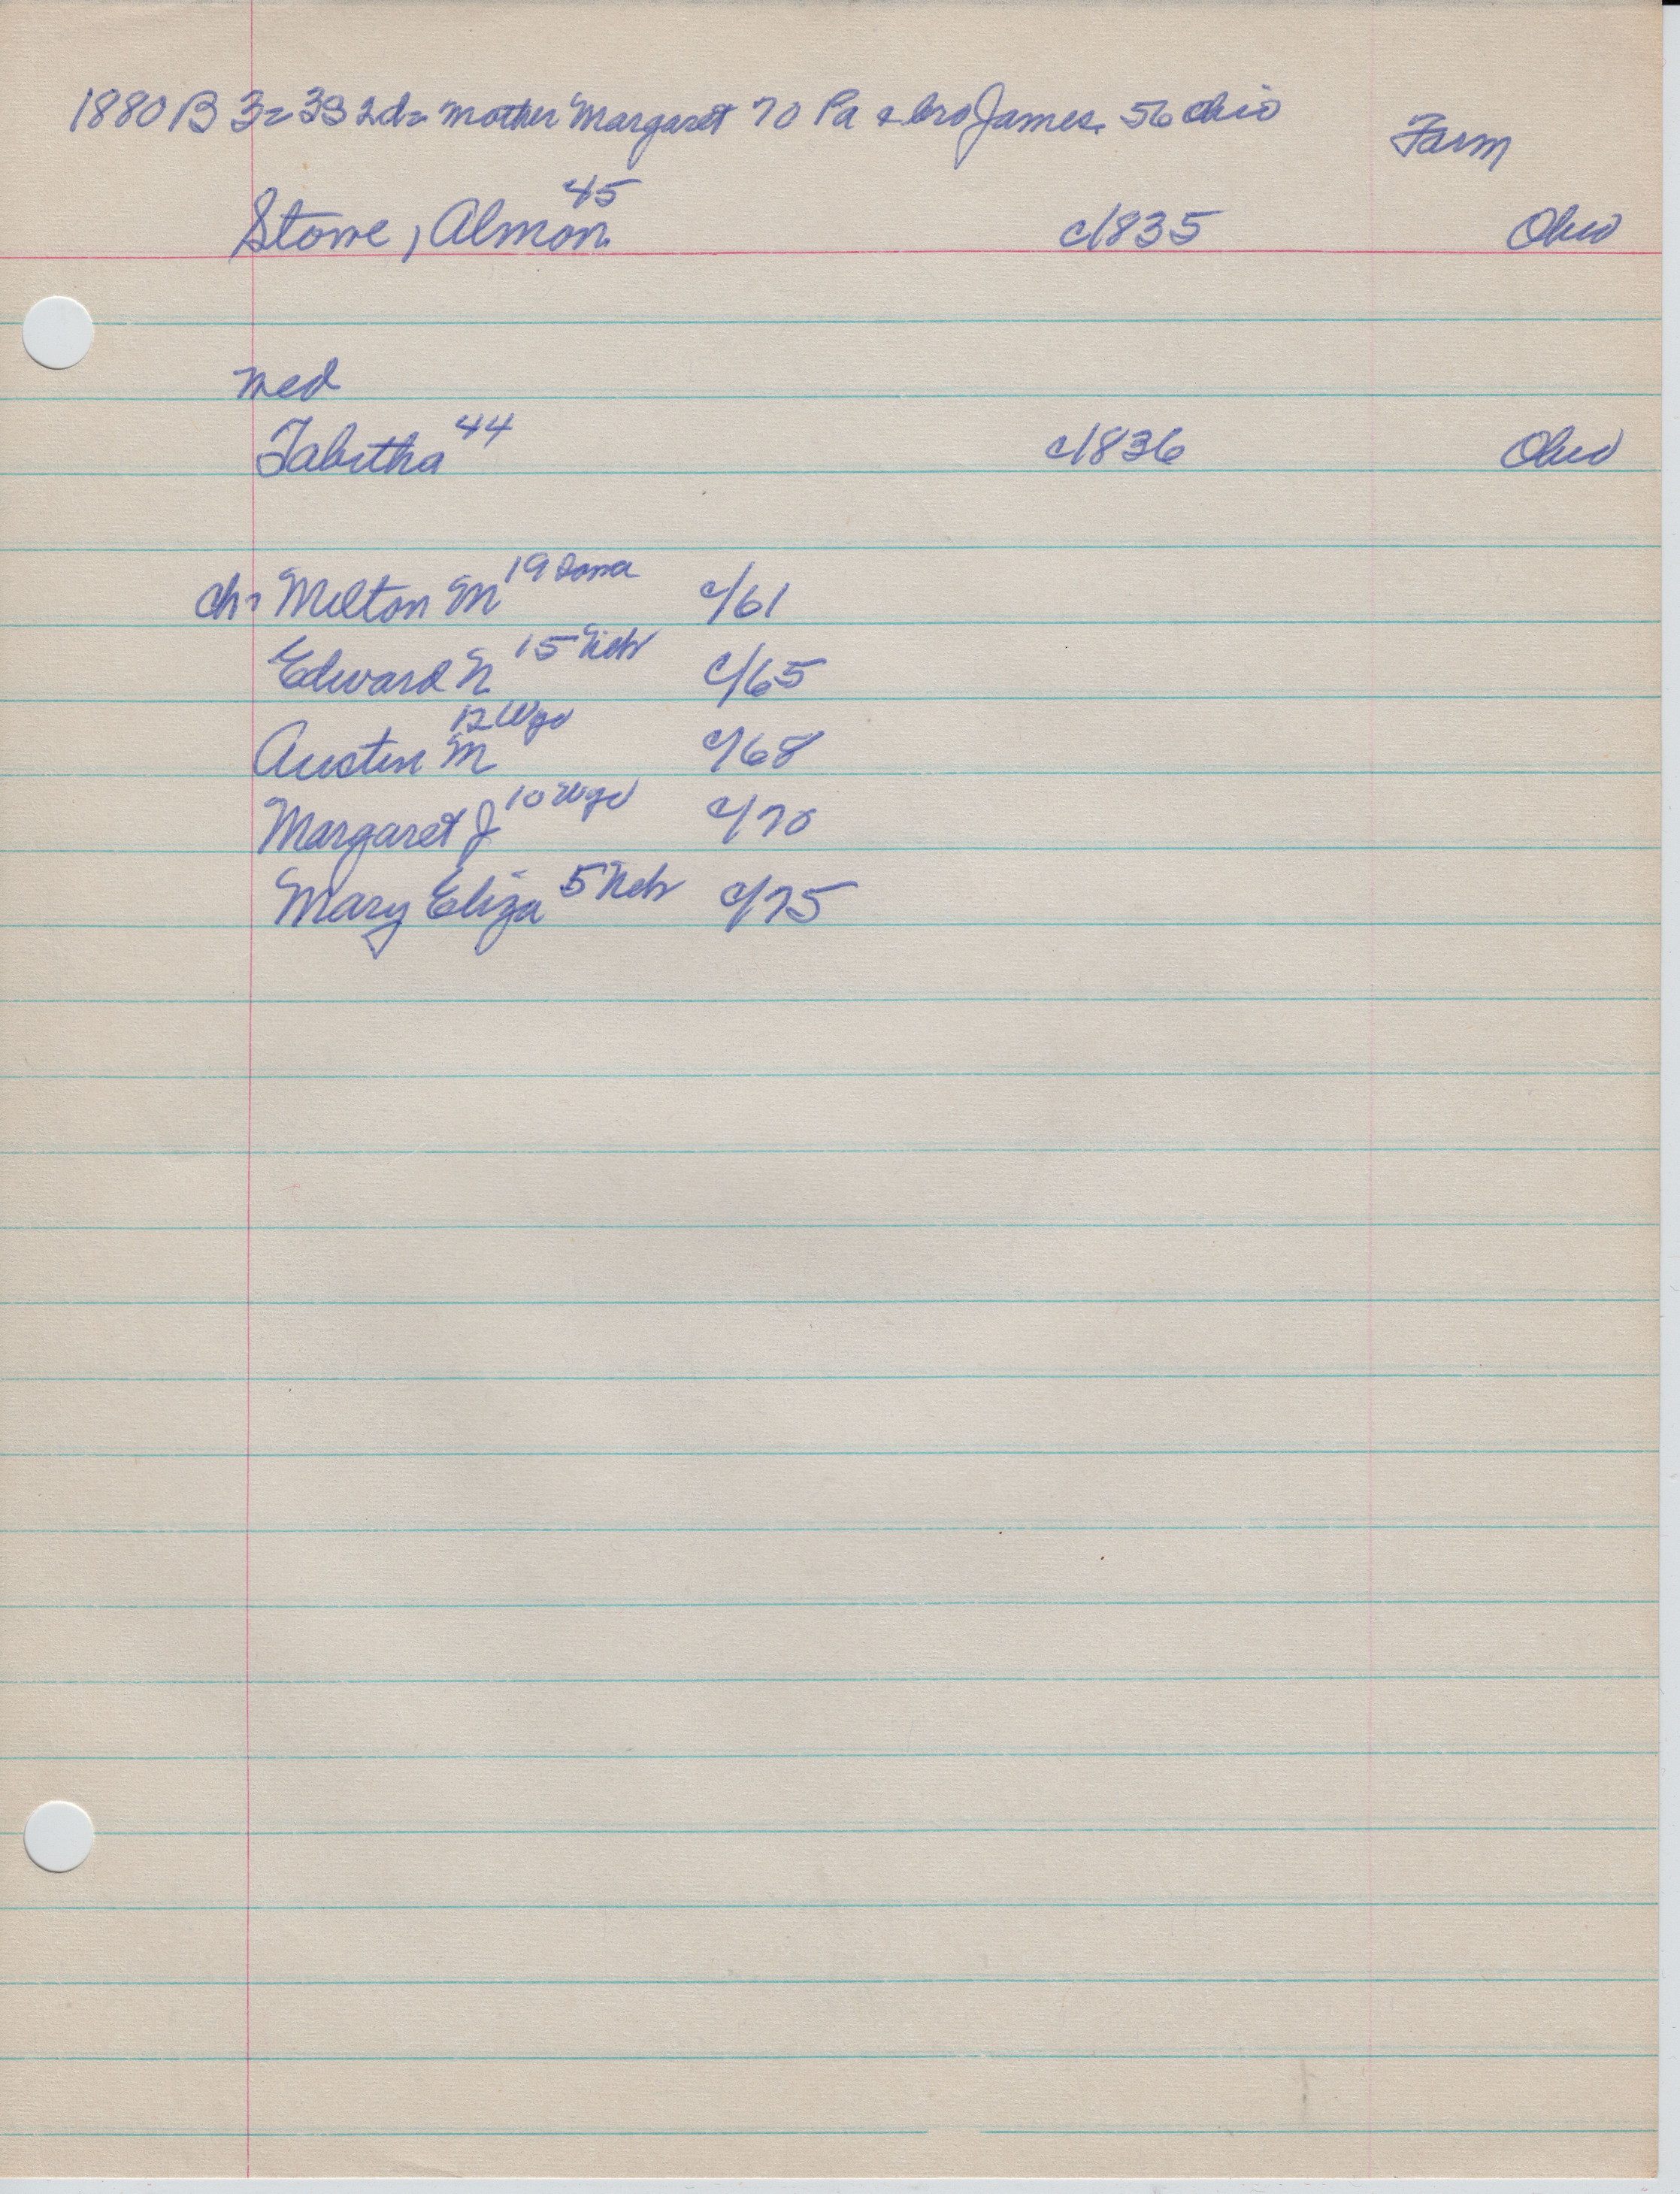 1880 B 3= 33 2d= mother Margaret 70 Pa & bro James 56 Ohio
Farm
Stone, Almon 45 c/1835 Ohio
med
Tabitha 44 c/1836 Ohio
ch= Milton M 19 Iowa c/61
Edward N 15 Neb c/65
Austin M 12 Wyo c/68
Margaret J 10 Wyo c/70
Mary Eliza 5 Neb c/75